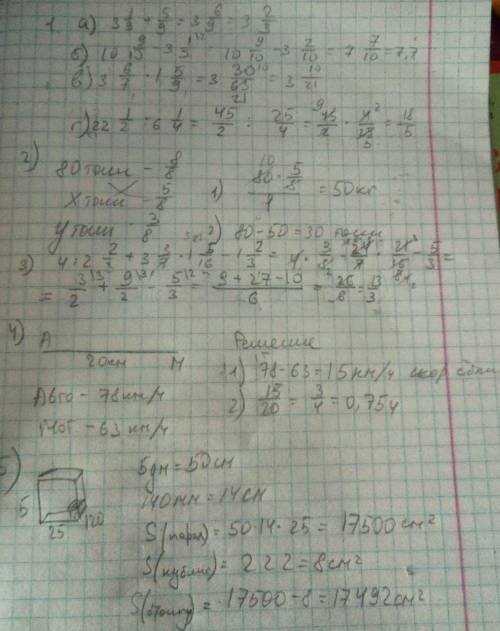 1. а) 3 1/3 + 5/9 = 3 6/9 = 3 2/3
б) 10 9/10 - 3 1/5 = 10 9/10 - 3 2/10 = 7 7/10 = 7,7
в) 3 6/7 · 1 5/9 = 3 = 3 10/21
г) 22 1/2 : 6 1/4 = 45/2 : 25/4 = 45/2 · = 18/5
2)
80 тонн - 8/8
х тонн - 5/8 1) 80 · 5/8 / 1 = 50 кг
у тонн - 3/8 2) 80 - 50 = 30 тонн
3) 4 : 2 2/3 + 3 3/7 · 1 5/16 - 1 2/3 = 4 · 3/8 + 24/7 · 21/16 - 5/3 =
= 3/2 + 9/2 - 5/3 = 9 + 27 - 10 / 6 = 26/6 = 13/3
4) А Решение
20км М 1) 78 - 63 = 15 км/ч скор сбли
Авто - 78 км/ч 2) 15/20 = 3/4 = 0,75ч
Мот - 63 км/ч
5) Sдн = 50 см
140мм = 14 см
5 25 120
S(парал) = 50·14·25 = 17500 см²
S(кубика) = 2 2 2 = 8 см²
= 17500 - 8 = 17492 см²